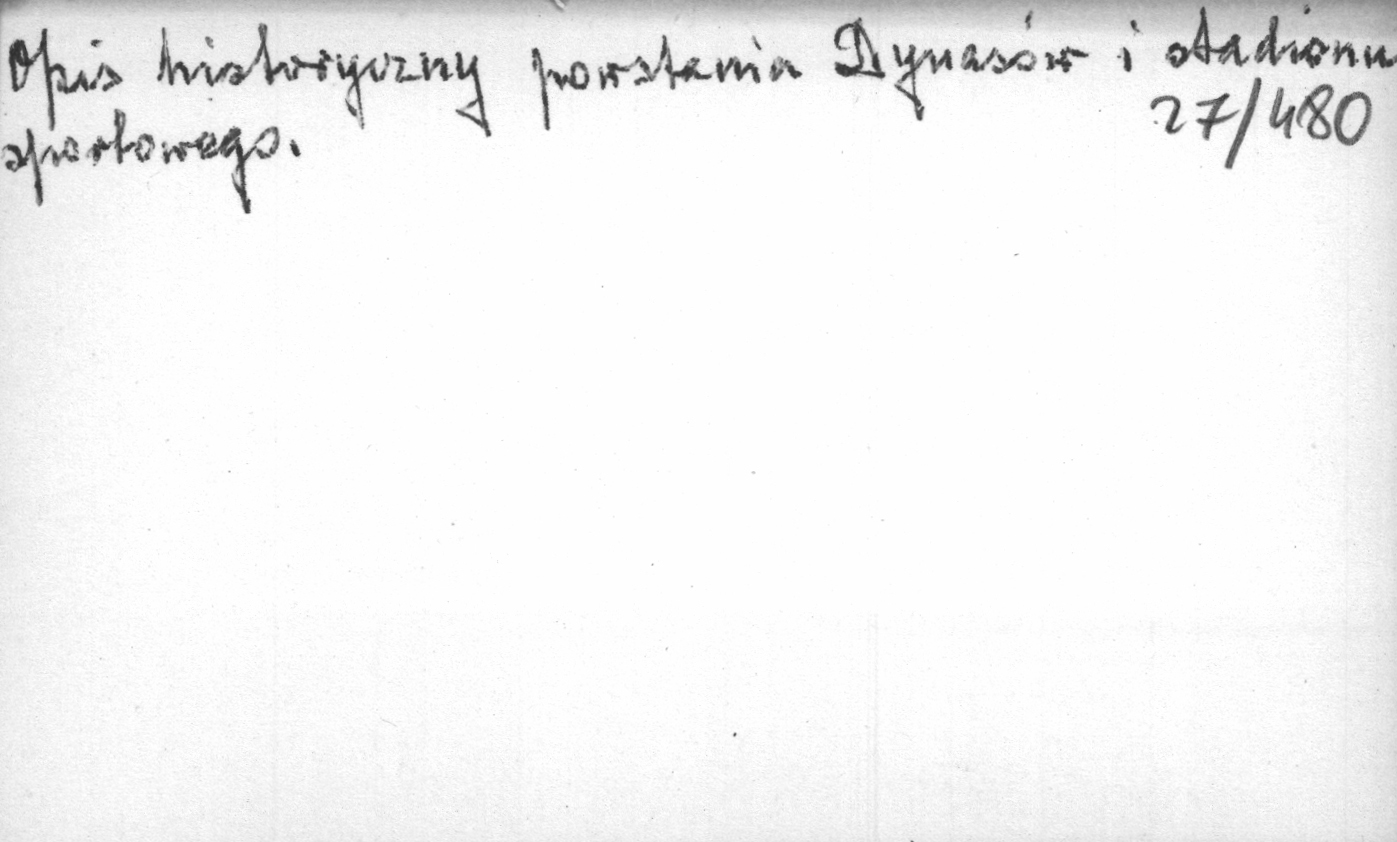 Opis historyczny powstania Dynasów i stadionu
27/480
sportowego.